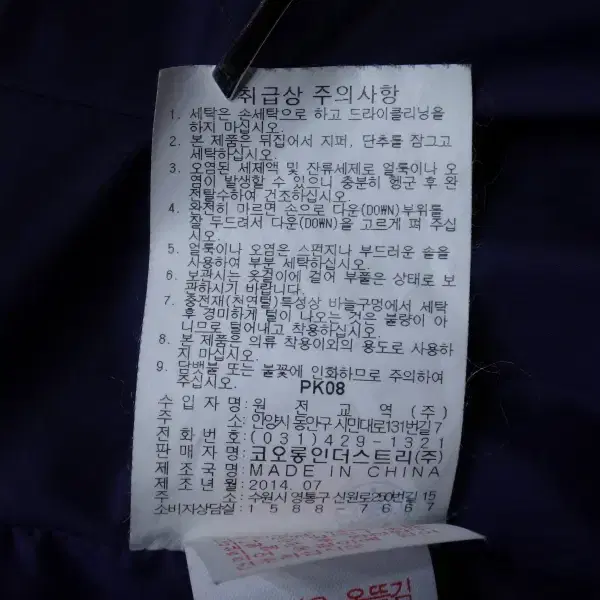 취급상 주의사항
1. 세탁은 손세탁으로 하고 드라이클리닝을
하지 마십시오.
2. 본 제품은 뒤집어서 지퍼, 단추를 잠그고
세탁하십시오.
3. 오염된 세제액 및 잔류세제로 얼룩이나 오
염이 발생할 수 있으니 충분히 헹군 후 완
전탈수하여 건조하십시오.
4. 완전히 마르면 손으로 다운(DOWN)부위를
잘 두드려서 다운(DOWN)을 고르게 펴 주십
시오.
5. 얼룩이나 오염은 스펀지나 부드러운 솔을
사용하여 부분 세탁하십시오.
6. 보관시는 옷걸이에 걸어 부풀은 상태로 보
관하시기 바랍니다.
7. 충전재(천연털)특성상 바늘구멍에서 세탁
후 경미하게 털이 나오는 것은 불량이 아
니므로 털어내고 착용하십시오.
8. 본 제품은 의류 착용이외의 용도로 사용하
지 마십시오.
9. 담뱃불 또는 불꽃에 인화하므로 주의하여
주십시오.
PK08
수 입 자 명 : 원 전 교 역 (주)
주 소 : 안양시 동안구 시민대로131번길 7
전 화 번 호 : (031)429-1321
판 매 자 명 : 코오롱인더스트리(주)
제 조 국 명 : MADE IN CHINA
제 조 년 월 : 2014. 07
주 소 : 수원시 영통구 신원로250번길 15
소비자상담실 : 1588-7667